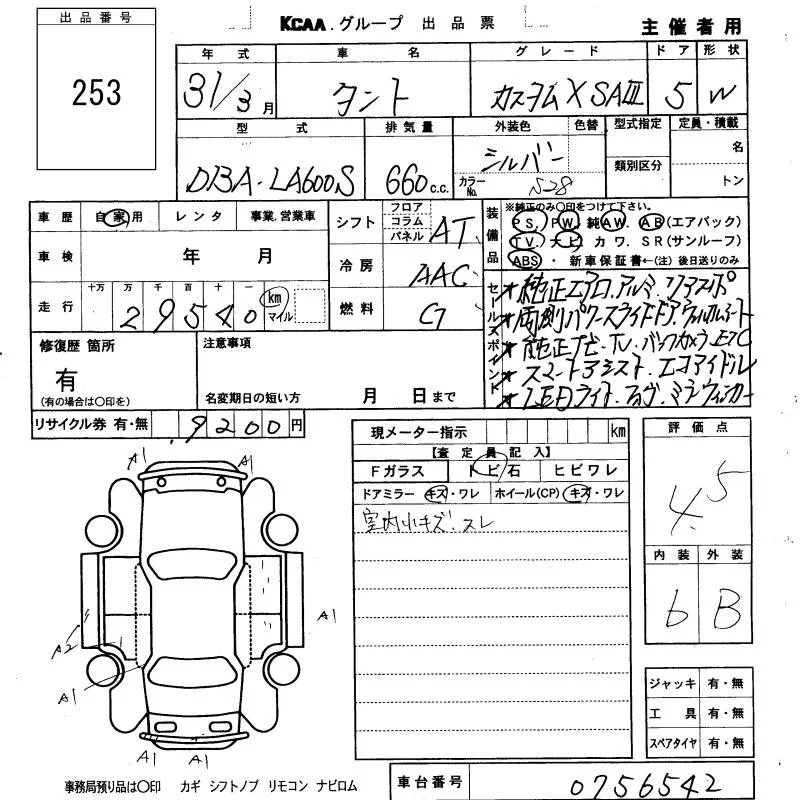 出品番号
253
KCAA.グループ 出品票
主催者用
年式 車名 グレード ドア 形状
31/3月 タント カスタムXSAⅢ 5 W
型式 排気量 外装色 色替 型式指定 定員・積載
DBA-LA600S 660c.c. シルバー 名
カラーNo. S28 類別区分 トン
車歴 自家用 レンタ 事業.営業車
車検 年 月
走行 十万 万 千 百 十 一 km マイル
29540
シフト フロア コラム パネル AT
冷房 AAC
燃料 G
装備品 ※純正のみ〇印をつけて下さい。
PS. PW. 純AW. AB(エアバック)
TV. ナビ カワ. SR(サンルーフ)
ABS・新車保証書←(注) 後日送りのみ
セールスポイント
★純正エアロ.アルミ.リアスポ
★両側パワースライドドア.ウェルカムシート
★純正ナビ.TV.バックカメラ.ETC
★スマートアシスト.エコアイドル
★LEDライト.フォグ.ミラーウィンカー
修復歴 箇所
有
(有の場合は〇印を)
注意事項
名変期日の短い方 月 日まで
リサイクル券 有・無 9200円
現メーター指示 km
【査定員記入】
Fガラス トビ石 ヒビワレ
ドアミラー キズ・ワレ ホイール(CP) キズ・ワレ
室内小キズ.スレ
評価点
4.5
内装 外装
b B
A1 A1
A1
A2
A1
A1 A1
ジャッキ 有・無
工具 有・無
スペアタイヤ 有・無
事務局預り品は〇印 カギ シフトノブ リモコン ナビロム
車台番号 0756542